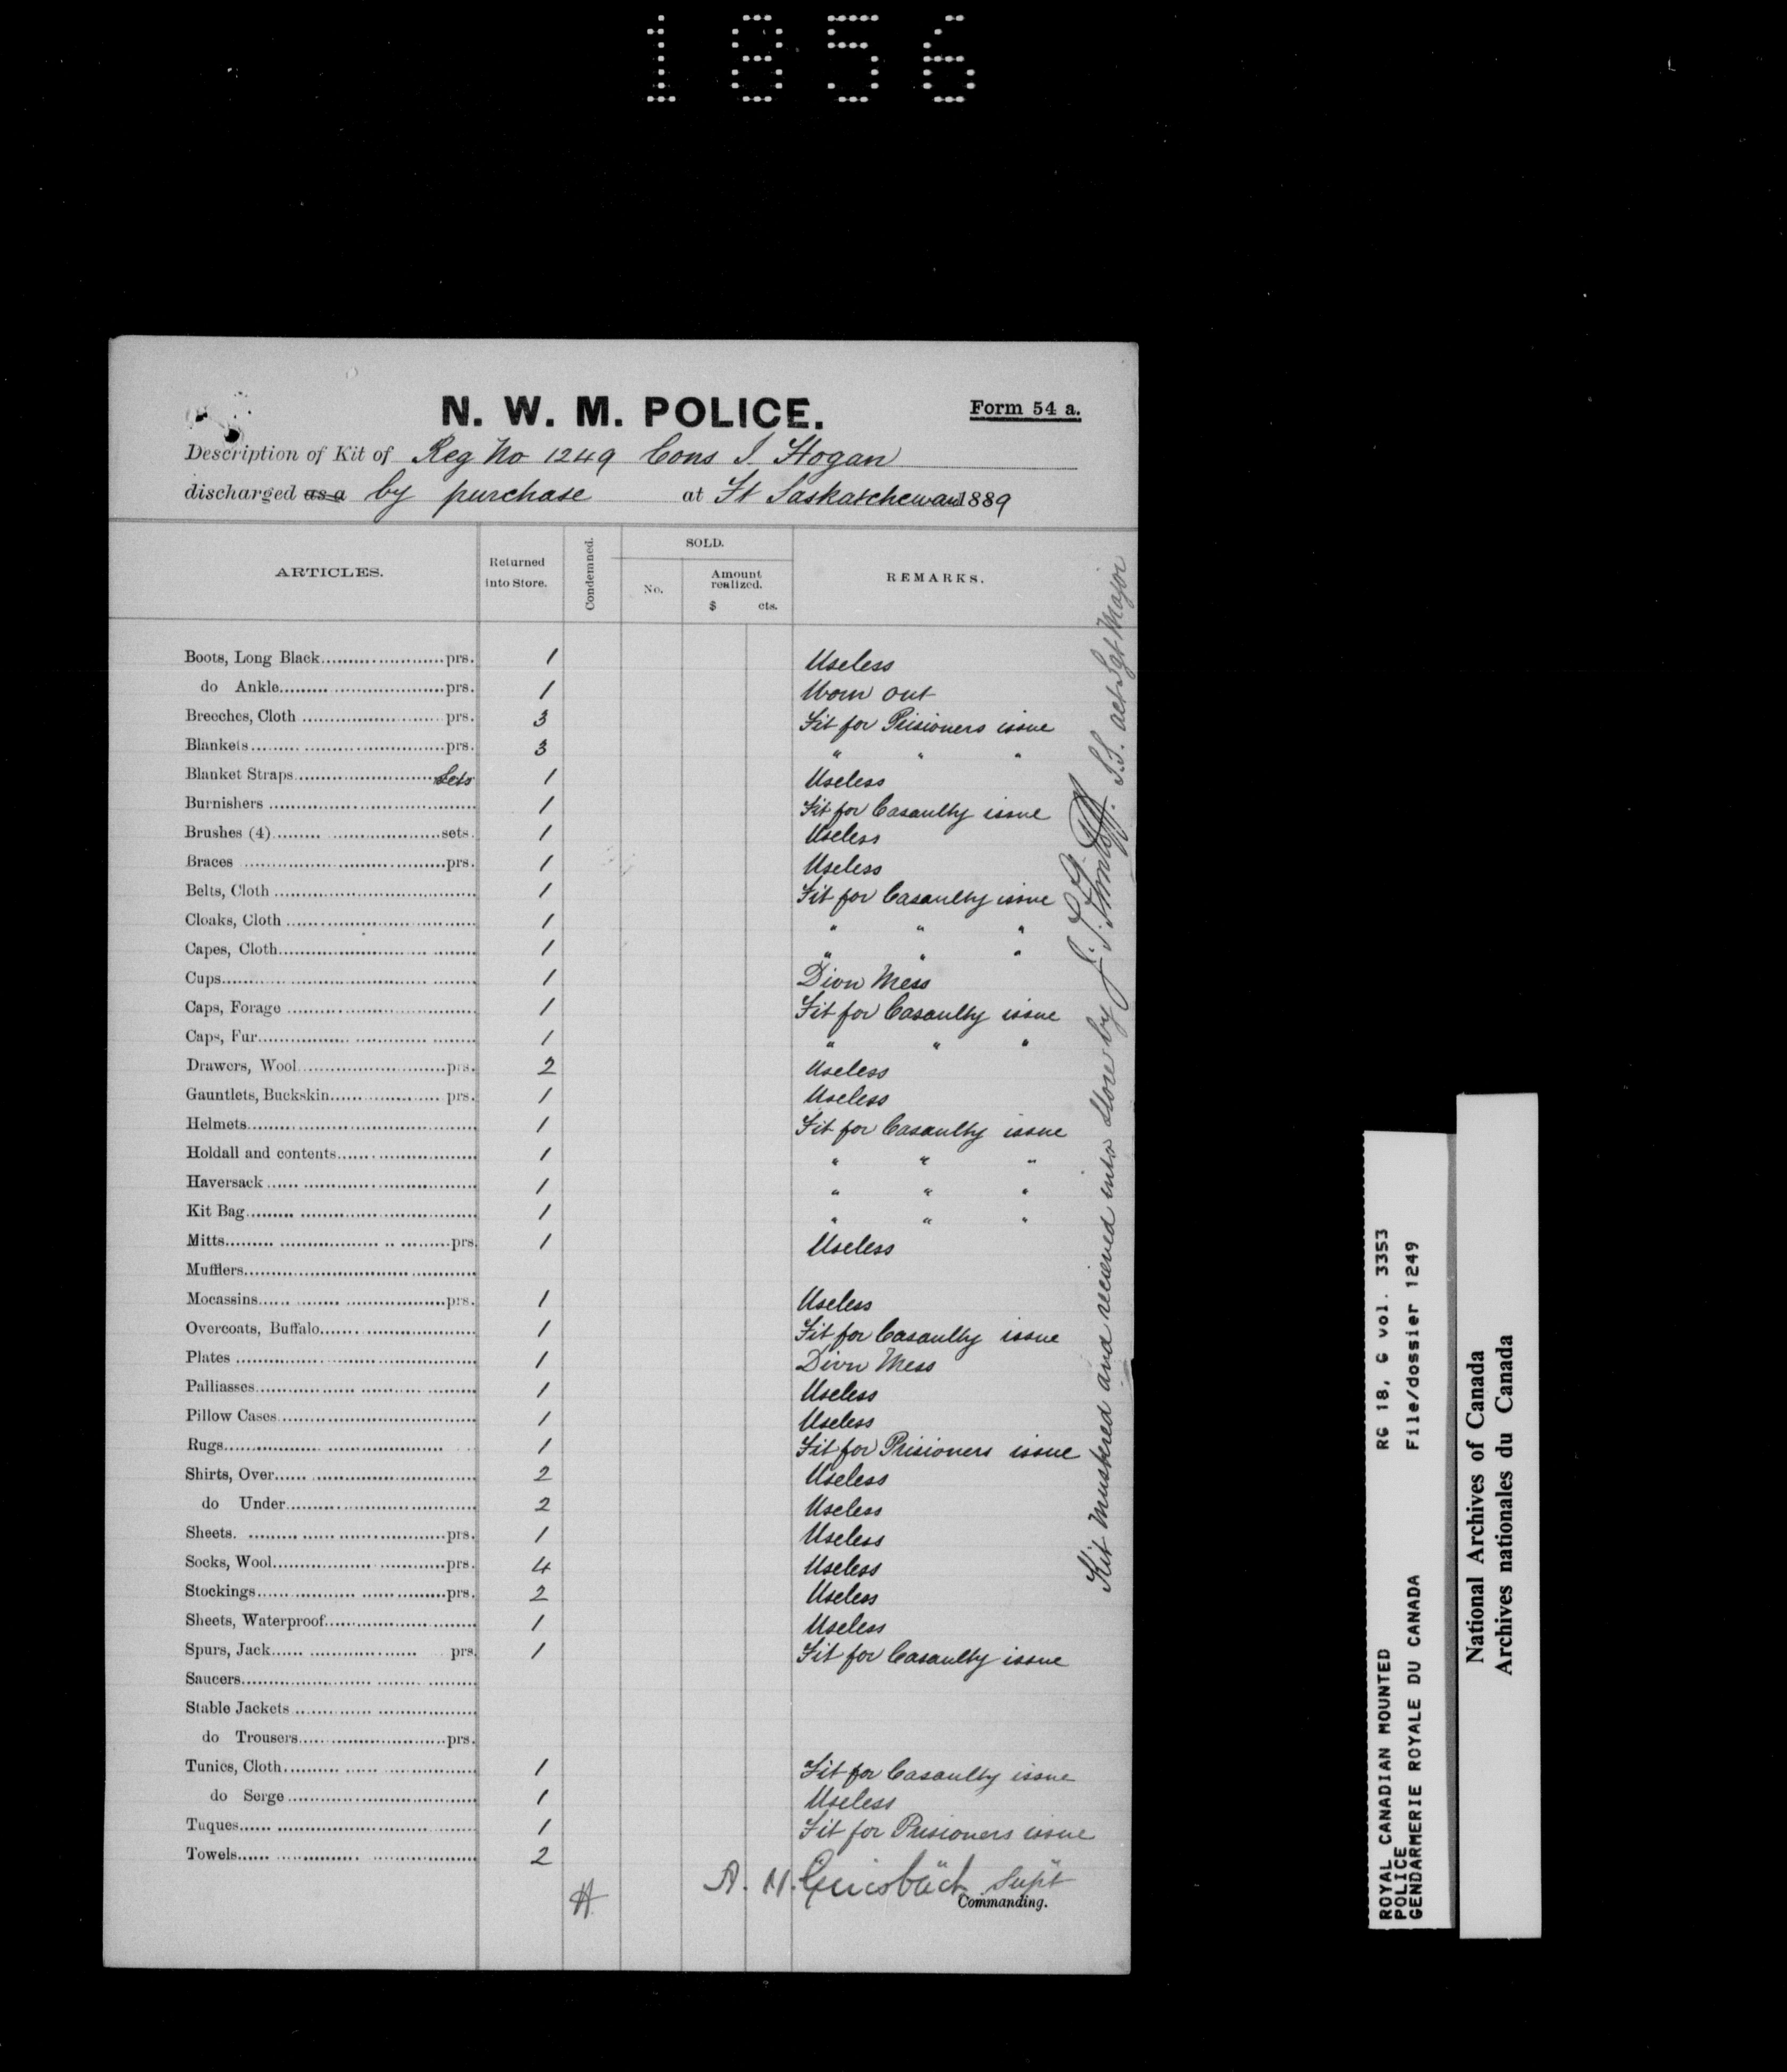 1856
N. W. M. POLICE.
Form 54 a.
Description of Kit of Reg No 1249 Cons J. Hogan
discharged as a by purchase at Ft Saskatchewan 1889
ARTICLES. Returned into Store. Condemned. SOLD. No. Amount realized. $ cts. REMARKS.
Boots, Long Black prs. 1 Useless
do Ankle prs. 1 Worn out
Breeches, Cloth prs. 3 Fit for Prisioners issue
Blankets prs. 3 " " "
Blanket Straps Sets 1 Useless
Burnishers 1 Fit for Casaulty issue
Brushes (4) sets. 1 Useless
Braces prs. 1 Useless
Belts, Cloth 1 Fit for Casaulty issue
Cloaks, Cloth 1 " " "
Capes, Cloth 1 " " "
Cups 1 Divn Mess
Caps, Forage 1 Fit for Casaulty issue
Caps, Fur 1 " " "
Drawers, Wool prs. 2 Useless
Gauntlets, Buckskin prs. 1 Useless
Helmets 1 Fit for Casaulty issue
Holdall and contents 1 " " "
Haversack 1 " " "
Kit Bag 1 " " "
Mitts prs. 1 Useless
Mufflers
Mocassins prs. 1 Useless
Overcoats, Buffalo 1 Fit for Casaulty issue
Plates 1 Divn Mess
Palliasses 1 Useless
Pillow Cases 1 Useless
Rugs 1 Fit for Prisioners issue
Shirts, Over 2 Useless
do Under 2 Useless
Sheets. prs. 1 Useless
Socks, Wool prs. 4 Useless
Stockings prs. 2 Useless
Sheets, Waterproof 1 Useless
Spurs, Jack prs. 1 Fit for Casaulty issue
Saucers
Stable Jackets
do Trousers prs.
Tunics, Cloth 1 Fit for Casaulty issue
do Serge 1 Useless
Tuques 1 Fit for Prisioners issue
Towels 2
A. H. Griesbach Supt
Commanding.
Kit mustered and recieved into store by S.S. act Sgt Major
ROYAL CANADIAN MOUNTED POLICE
GENDARMERIE ROYALE DU CANADA
RG 18, G vol. 3353
File/dossier 1249
National Archives of Canada
Archives nationales du Canada